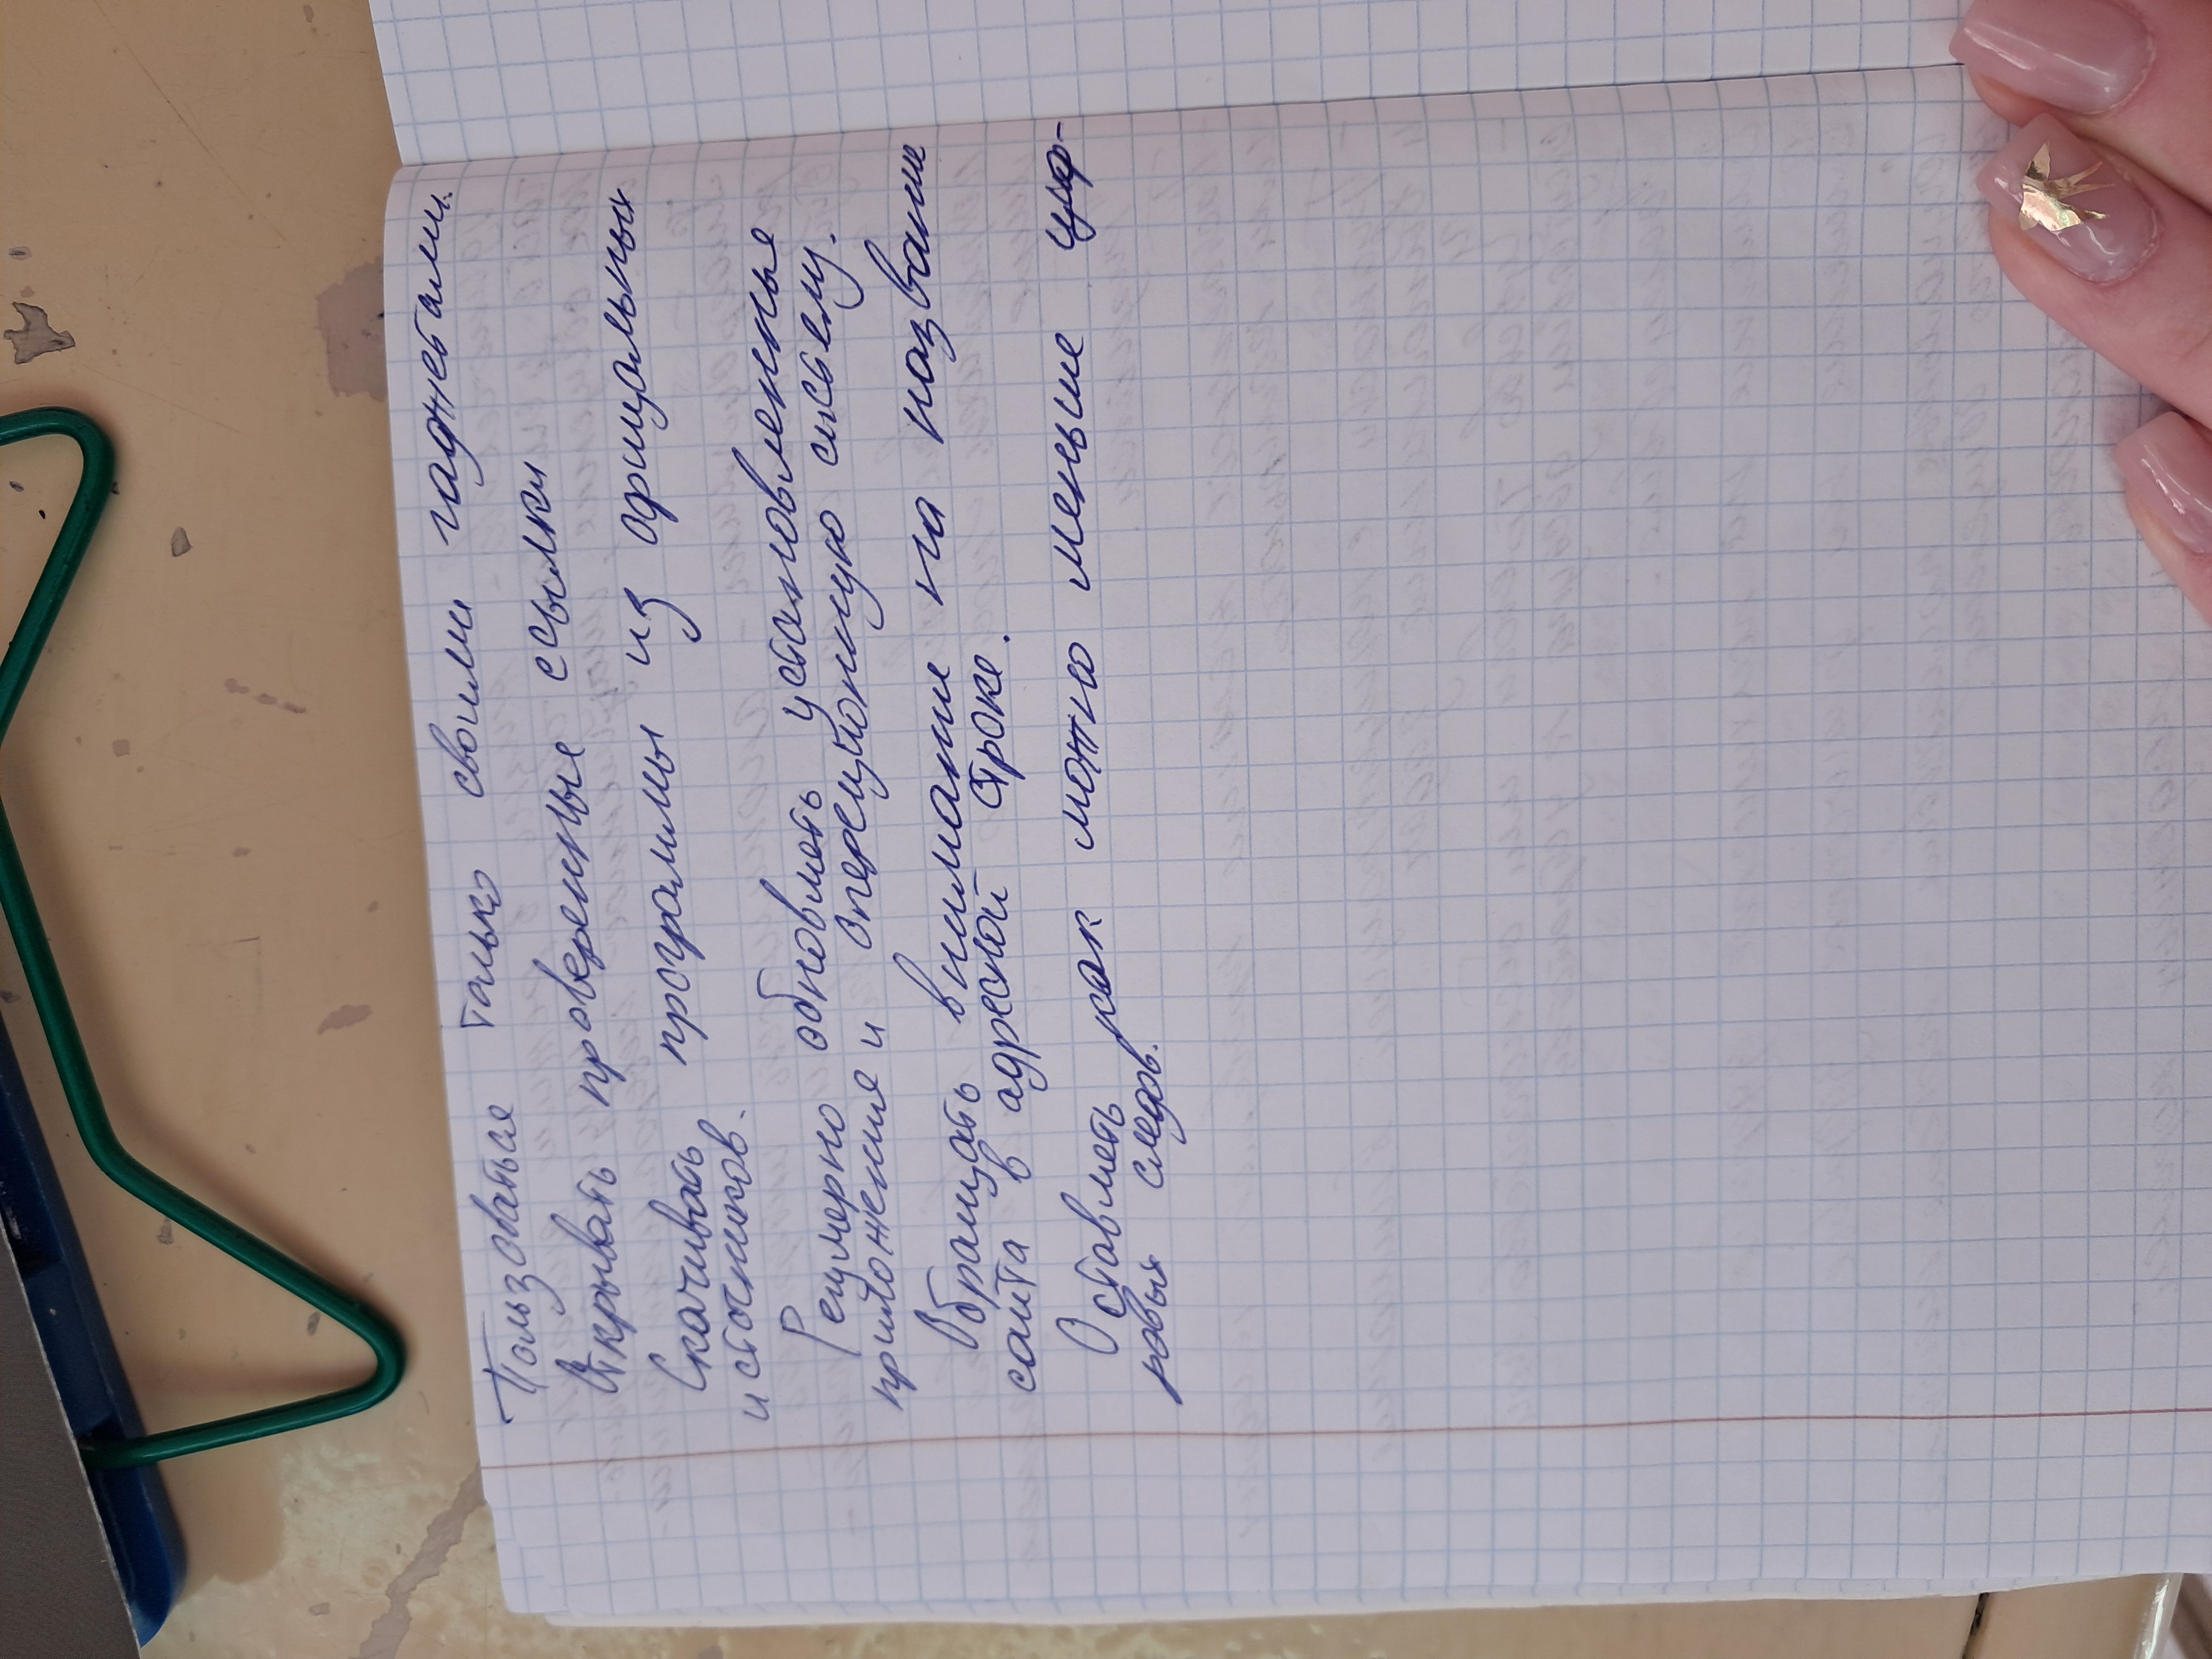 Пользоваться только своими гаджетами.
Открывать проверенные ссылки
Скачивать программы из официальных
источников.
Регулярно обновлять установленные
приложения и операционную систему.
Обращать внимание на название
сайта в адресной строке.
Оставлять как можно меньше циф-
ровых следов.